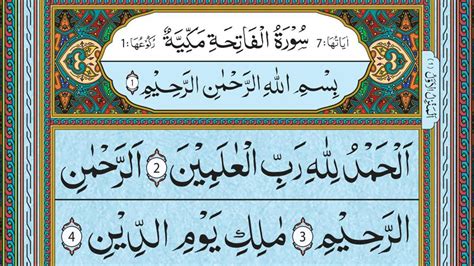 اٰيَاتُهَا: 7 سُوْرَةُ الْفَاتِحَةِ مَكِّيَّةٌ رُكُوْعُهَا: 1
بِسْمِ اللّٰهِ الرَّحْمٰنِ الرَّحِيْمِ 1
اَلْحَمْدُ لِلّٰهِ رَبِّ الْعٰلَمِيْنَ 2 الرَّحْمٰنِ
الرَّحِيْمِ 3 مٰلِكِ يَوْمِ الدِّيْنِ 4